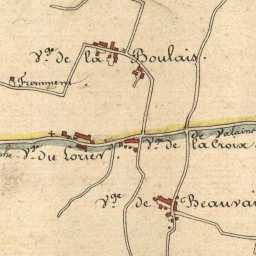 Vge de la Boulais
Fromment
Vge du Lorier
Vge de la Croix
Vge de Beauvai